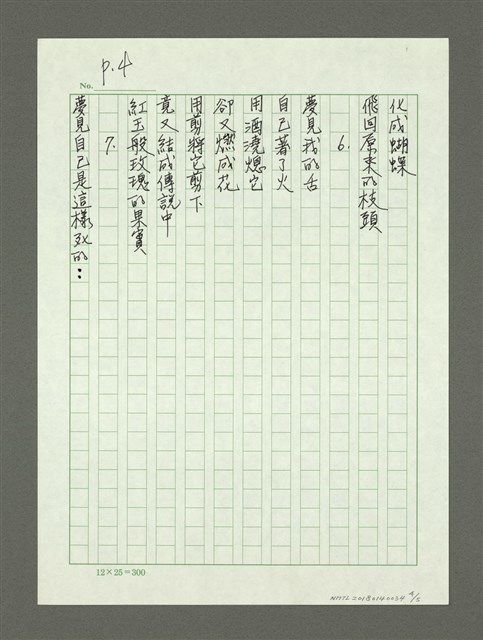 No. p.4
化成蝴蝶
飛回原來的枝頭
6.
夢見我的舌
自己著了火
用酒澆熄它
卻又燃成花
用剪將它剪下
竟又結成傳說中
紅玉般玫瑰的果實
7.
夢見自己是這樣死的：
12×25=300
NMTL20180140034 4/5